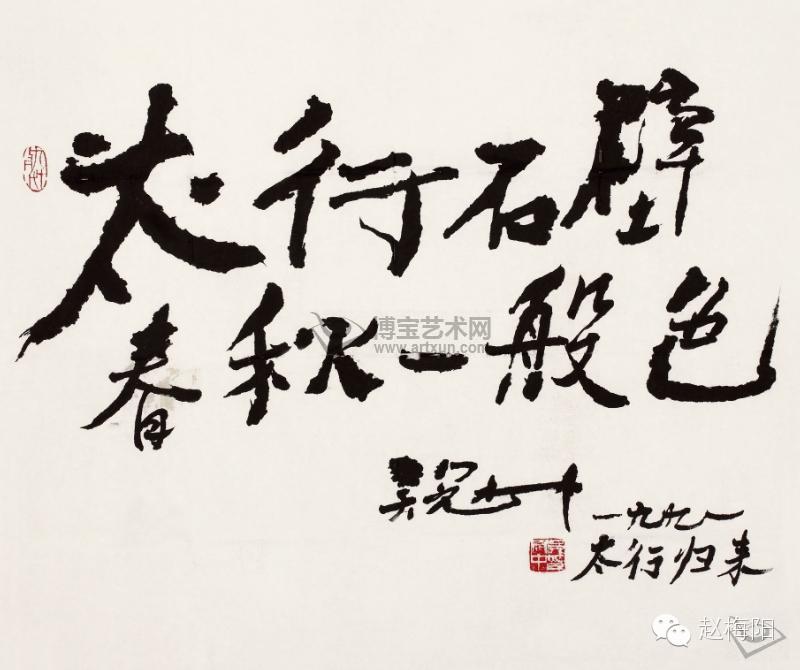 太行石壁
春秋一般色
吴冠中
一九九一
太行归来
博宝艺术网
www.artxun.com
赵梅阳